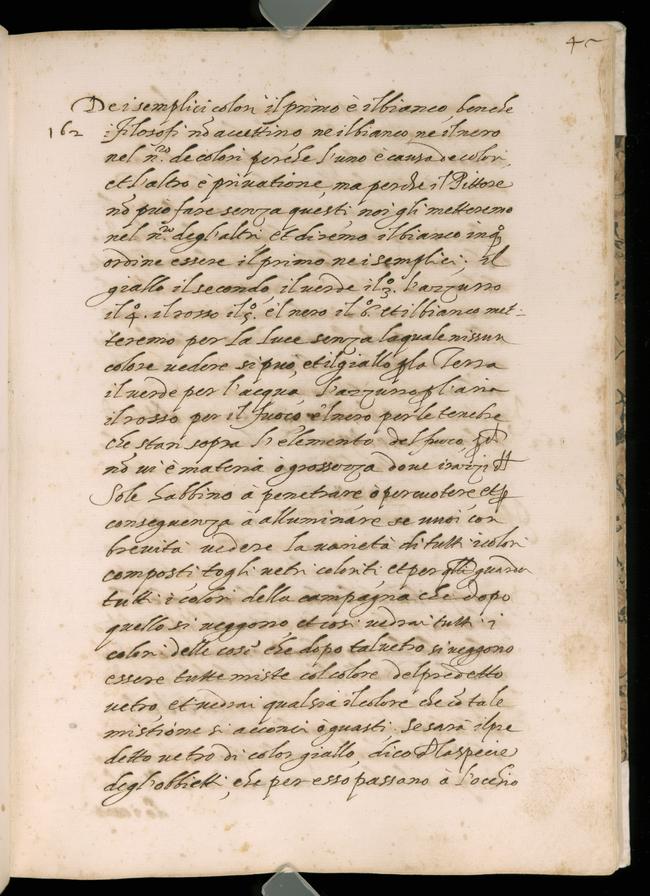 42
De i semplici colori il primo è il bianco benche
162 i Filosofi nō accettino ne il bianco ne il nero
nel n.ro de colori perche l'uno è causa de colori,
et l'altro è privatione, ma perche il Pittore
nō può fare senza questi noi gli metteremo
nel n.ro degl'altri et diremo il bianco in qo
ordine essere il primo ne i semplici. Il
giallo il secondo il verde il 3.o l'azzurro
il 4.o il rosso il 5.o e 'l nero il 6.o et il bianco met=
teremo per la luce senza la quale nissun
colore vedere si può, et il giallo p la Terra
il verde per l'acqua l'azzurro p l'aria
il rosso per il fuoco e 'l nero per le tenebre
che stan sopra l'elemento del fuoco, p
nō vi è materia o grossezza dove i razzi
Sole habbino à penetrare ò percuotere et p
conseguenza à alluminare se vuoi con
brevità vedere la varietà di tutti i colori
composti togli vetri coloriti et per qlli guarda
tutti i colori della campagna che dopo
quello si veggono et cosi vedrai tutti i
colori delle cose che dopo tal vetro si veggono
essere tutte miste col colore del predetto
vetro et vedrai qual sia il colore che cō tale
mistione si acconci ò guasti. Se sarà il pre
detto vetro di color giallo dico la specie
degl'obbietti, che per esso passano à l'occhio